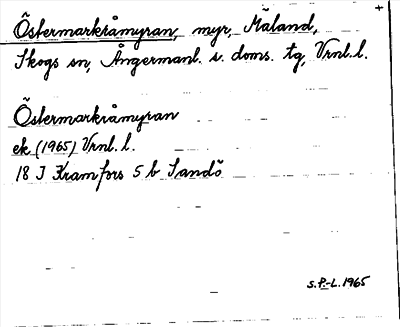 +
Östermarkråmyran, myr, Mäland,
Skogs sn, Ångermanl. s. doms. tg, Vrnl. l.
Östermarkråmyran
ek (1965) Vrnl. l.
18 J Kramfors 5 b Sandö
S.P.-L. 1965